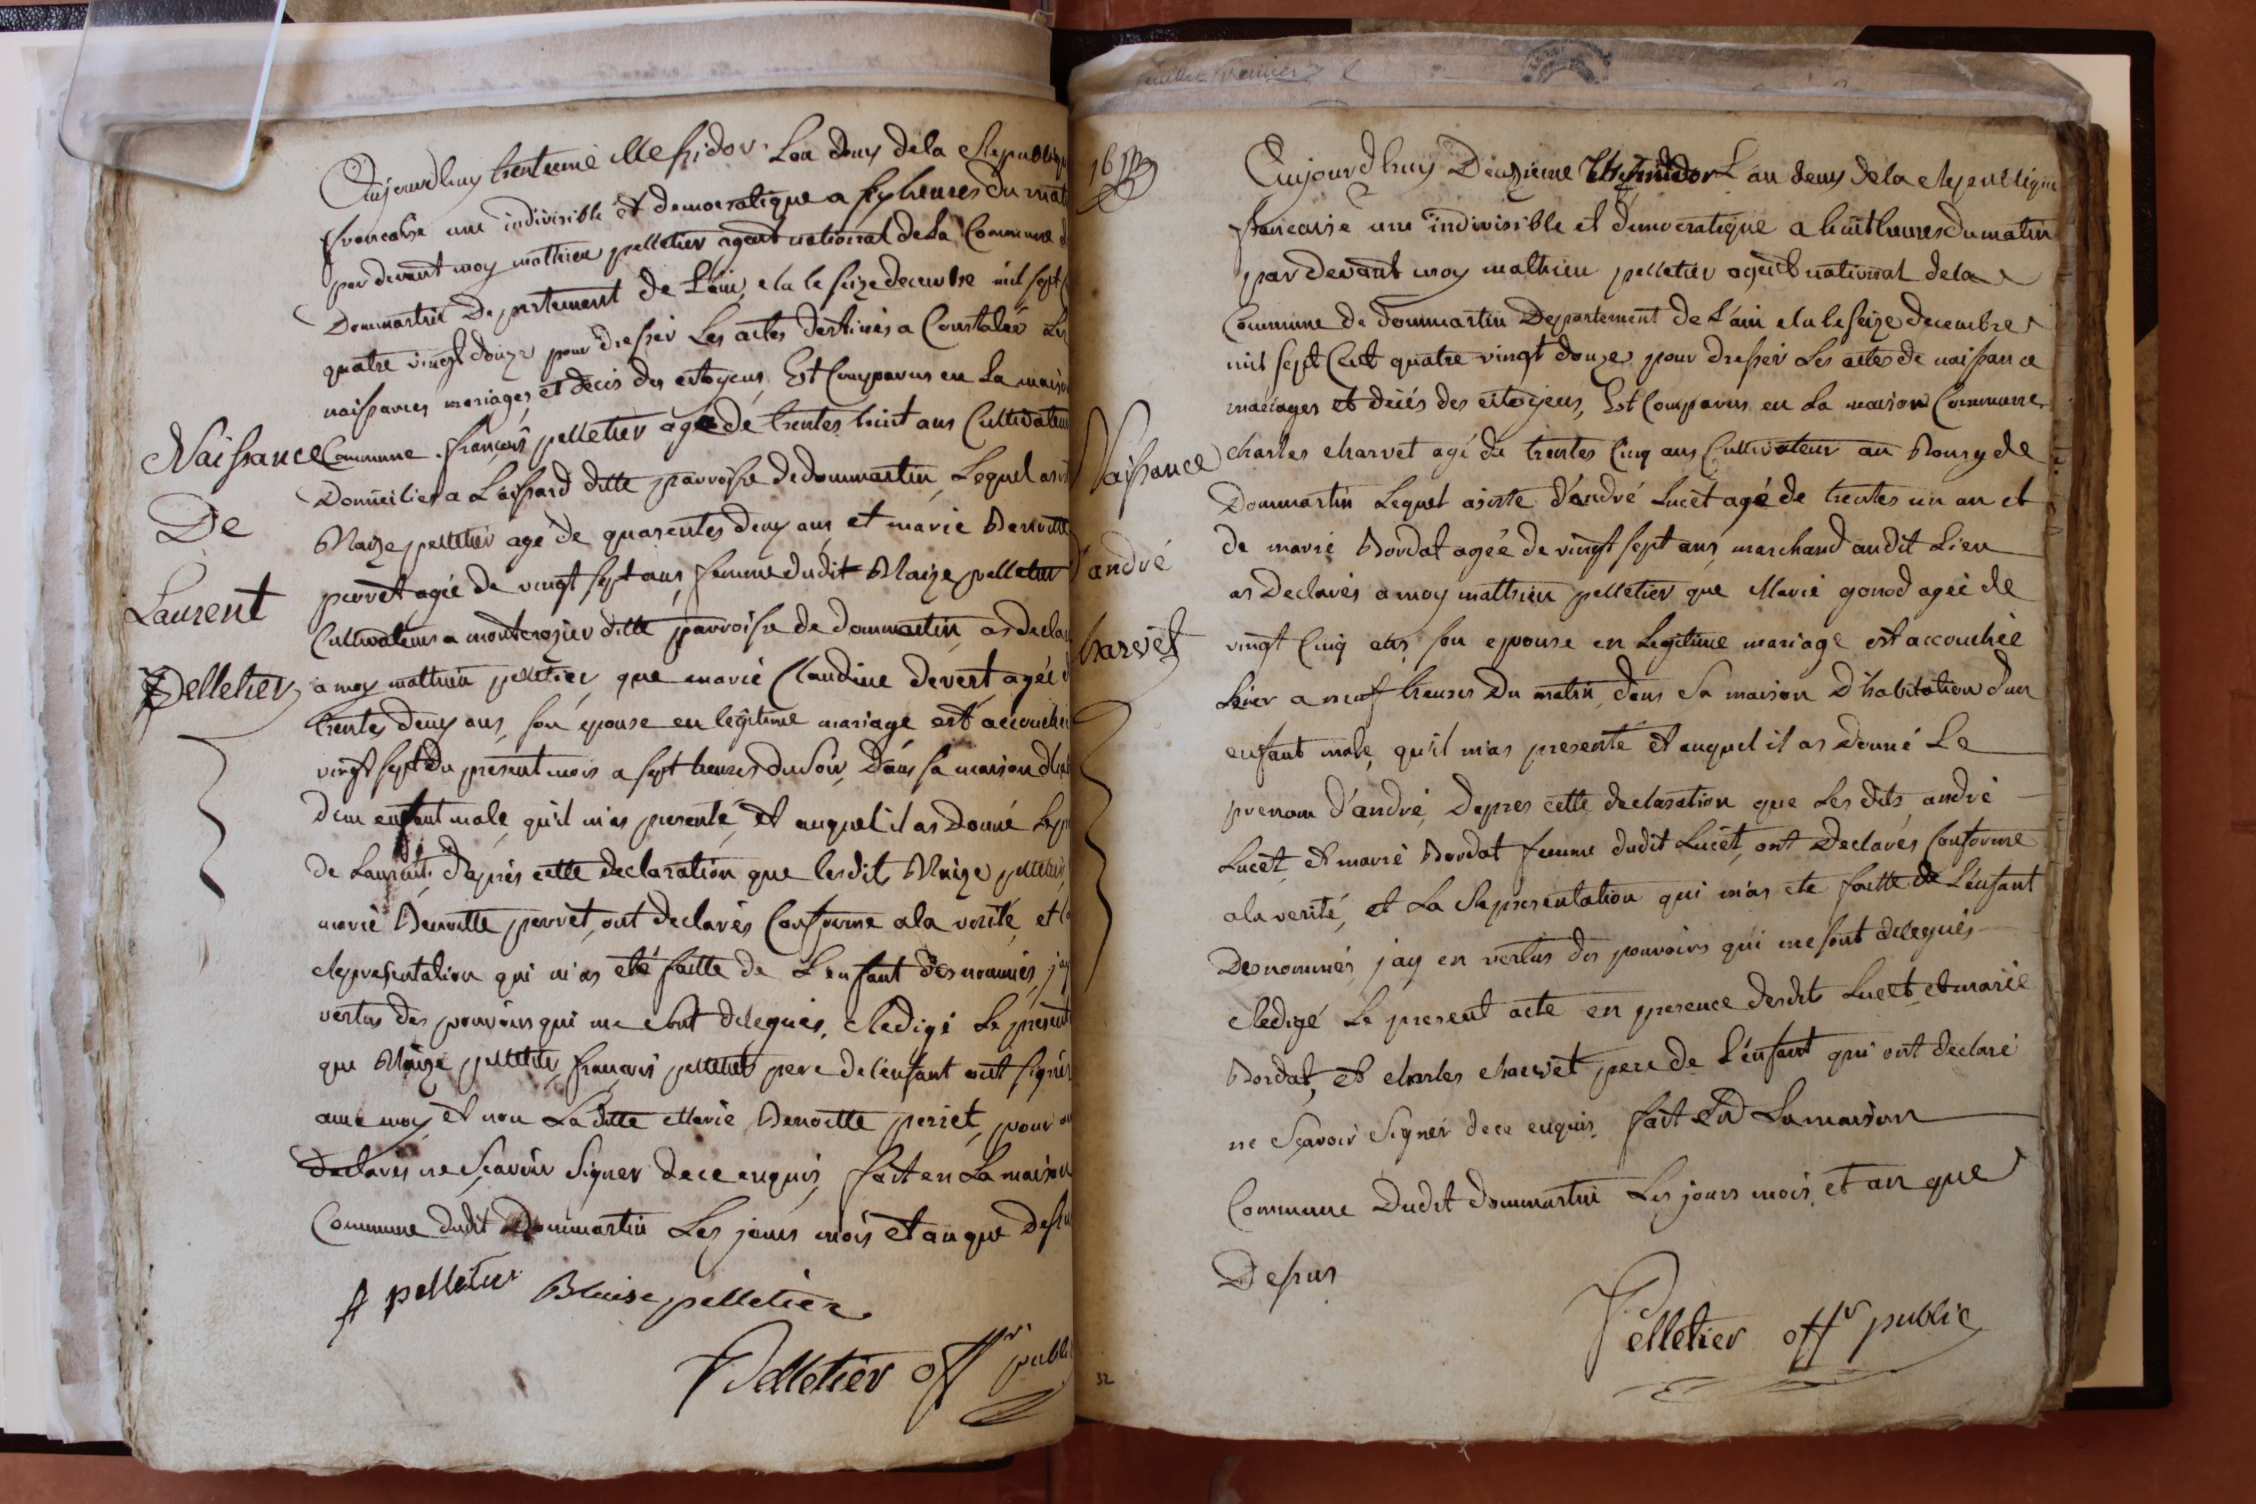 Aujourdhuy trentieme Messidor Lan deux dela Republiq
francaise une indivisible et democratique a six heures du mat
par devant moy mathieu pelletier agent national dela Commune d
Dommartin Departement de L'ain elu le seize decembre mil sept
quatre vingt douze pour dresser Les actes destinés a Constater Les
naissances mariages et décés des citoyens, Est Comparus en La maiso
Commune françois pelletier agé de trentes huit ans Cultivateur
Domicilier a Loissard ditte parroisse de dommartin, Lequel
Blaize pelletier agé de quarentes deux ans et marie Benoitte
perret agée de vingt sept ans, femme dudit Blaize pelletier
Cultivateurs a monterozier ditte parroisse de dommartin as decla
a moy mathieu pelletier, que marie Claudine devert, agée d
trentes deux ans, son epouse en legitime mariage est accouchée
vingt sept du present mois a sept heures du soir, Dans sa maison d'ha
d'un enfant male, qu'il m'as presenté, et auquel il as Donné Le p
de Laurent, d'après cette declaration que lesdits Blaize pelletier,
marie Benoitte perret, ont declarés Conforme a la verité, et l
Representation qui m'as eté faitte de L'enfant denommés, j'ay
vertus des pouvoirs qui me sont delegués, Redigé Le present
que Blaize pelletier françois pelletier pere de l'enfant ont signés
avec moy et non Laditte Marie Benoitte perret, pour
declarés ne Sçavoir Signer de ce enquis, fait en La maison
Commune dudit Dommartin Les jours mois et an que Dessu
f pelletier Blaise pelletier
Pelletier offr publi
Naissance
De
Laurent
Pelletier
16
Aujourdhuy Deuzieme Thermidor L'an deux dela Republique
francaise une indivisible et democratique a huit heures du matin
par devant moy mathieu pelletier agent national dela
Commune de dommartin Departement de L'ain elu le seize decembre
mil sept Cent quatre vingt douze pour dresser Les actes de naissance
mariages et décés des citoyens, Est Comparus en La maison Commune
charles charvet agé de trentes Cinq ans Cultivateur au Bourg de
Dommartin Lequel asisté d'andré Lucet agé de trentes un an et
de marie Bordat agée de vingt sept ans, marchand audit Lieu
as Declarés a moy mathieu pelletier que Marie gonod agée de
vingt Cinq ans son epouse en Legitime mariage est accouchée
hier a neuf heures Du matin, dans Sa maison D'habitation d'un
enfant male, qu'il m'as presenté et auquel il as Donné Le
prenom d'andré, Dapres cette declaration que Les dits andré
Lucet, et marie Bordat femme dudit Lucet, ont Declarés Conforme
a la verité, et La Representation qui m'as ete faitte de L'enfant
Denommés, j'ay en vertus des pouvoirs qui me sont delegués
Redigé Le present acte en presence desdits Lucet et marie
Bordat, et charles charvet pere de L'enfant qui ont declaré
ne Sçavoir Signer de ce enquis, fait En La maison
Commune Dudit dommartin Les jours mois et an que
Dessus
Pelletier offr public
Naissance
D'andré
harvet
32